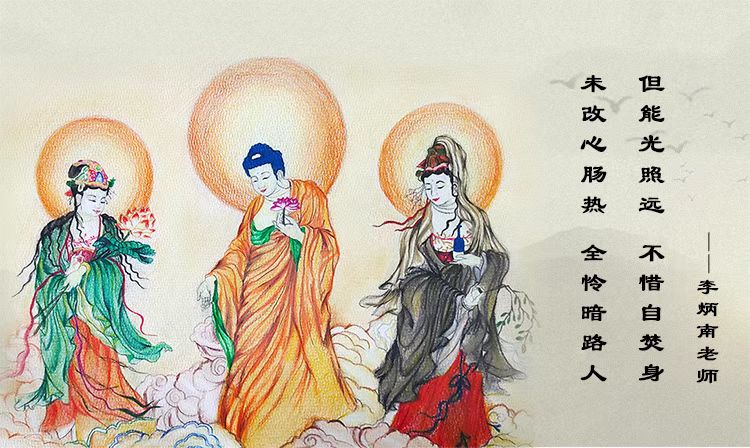 未改心肠热 全怜暗路人
但能光照远 不惜自焚身
——李炳南老师